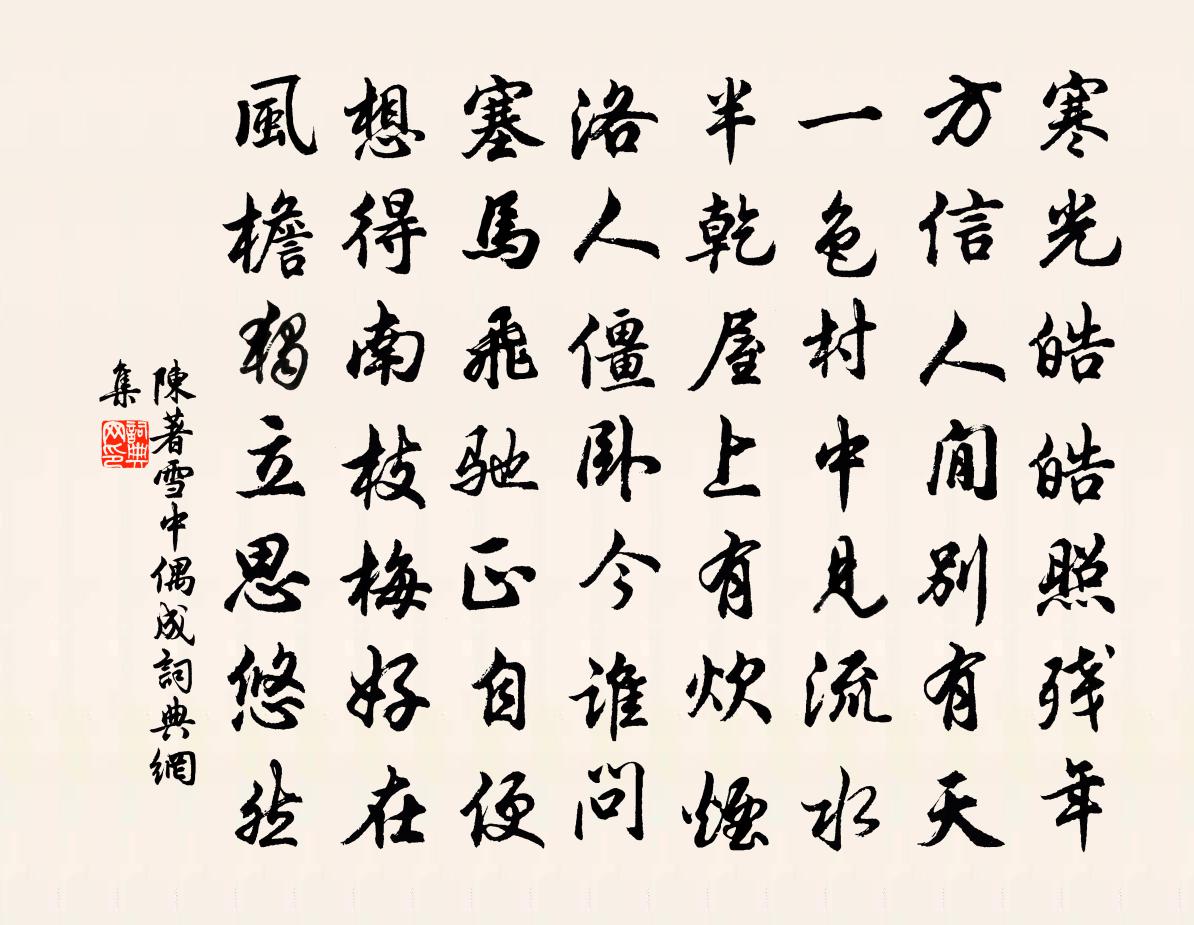 寒光皓皓照残年
方信人間別有天
一色村中見流水
半乾屋上有炊煙
洛人僵卧今誰問
塞馬飛馳正自便
想得南枝梅好在
風檐獨立思悠然
陳著雪中偶成詞典網
集
詞典
网印